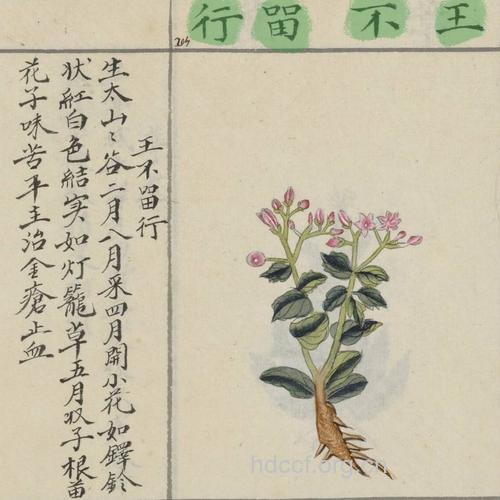 王不畱行
204
王不畱行
生太山々谷二月八月采四月開小花如鐸鈴
状紅白色結実如灯籠草五月収子根苗
花子味苦平主治金瘡止血
hdccf.org.cn